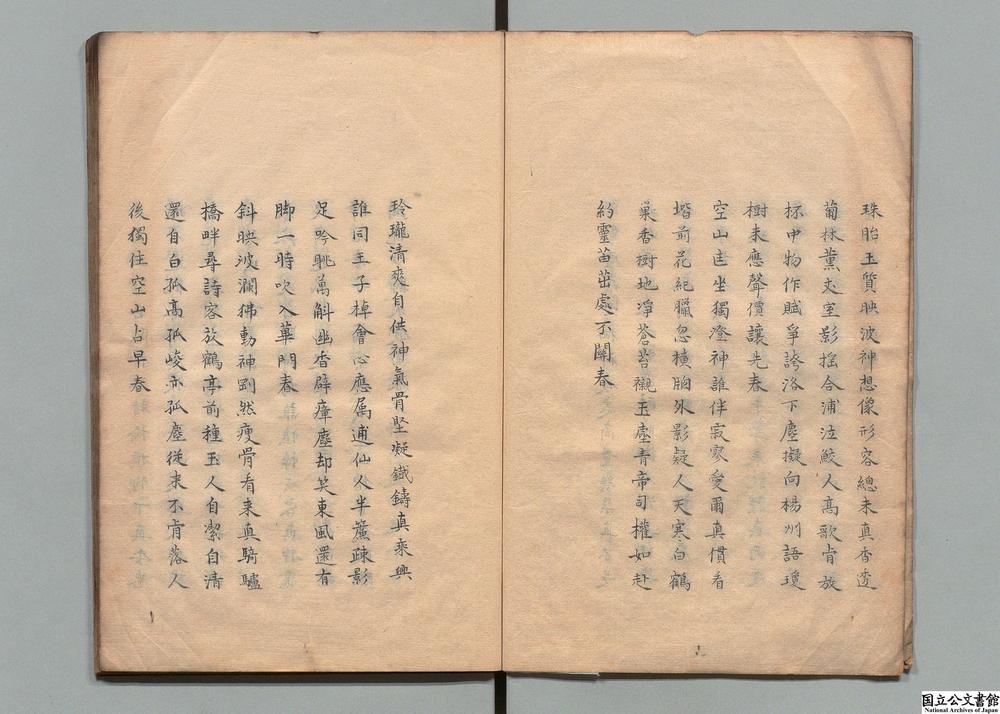 珠胎玉質映波神想像形容總未真香透
蔔林薰丈室影搖合浦泣鮫人高歌肯放
杯中物作賦爭誇洛下塵擬向楊州語瓊
樹未應聲價讓先春
空山危坐獨澄神誰伴寂寥愛爾真慣看
堦前花紀臘忽橫胸外影疑人天寒白鶴
巢香樹地凈蒼苔襯玉塵青帝司權如赴
約靈苗茁處不關春
玲瓏清爽自供神氣骨堅凝鐵鑄真乘興
誰同王子棹會心應屬逋仙人半簾疎影
足吟眺萬斛幽香辟瘴塵却笑東風還有
脚一時吹入蓽門春
斜映波瀾彿動神劃然瘦骨看來真騎驢
橋畔尋詩客放鶴亭前種玉人自潔自清
還自白孤高孤峻亦孤塵從來不肯落人
後獨住空山占早春
国立公文書館
National Archives of Japan